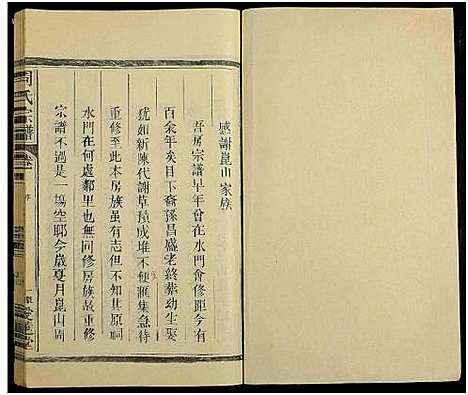 感謝崑山家族
吾房宗譜早年曾在水門會修距今有
百余年矣目下裔孫昌盛老終薪幼生娶
犹如新陳代謝草積成堆不便滙集急待
重修至此本房族雖有志但不知其原祠
水門在何處鄰里也無回修房族故重修
宗譜不過是一塲空耶今歲夏月崑山周
周氏宗譜
卷
序
愛蓮堂